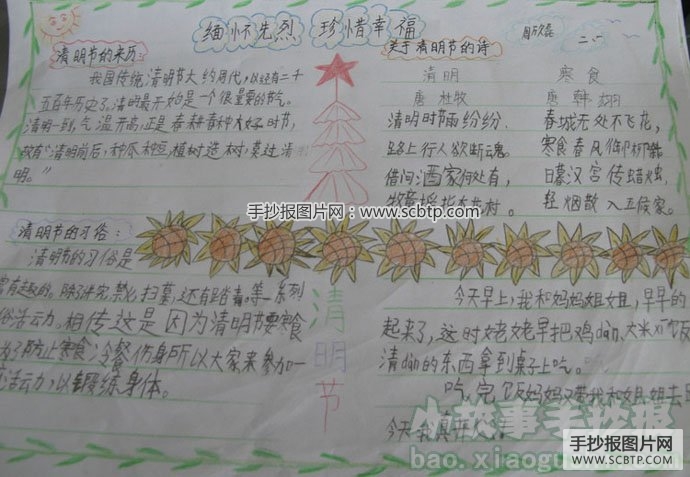 缅怀先烈 珍惜幸福
二、5
清明节的来历:
我国传统清明节大约周代,以经有二千
五百年历史了,清明最开始是一个很重要的节气。
清明一到,气温升高,正是春耕春种大好时节,
故有"清明前后,种瓜种豆,植树造树,莫过清
明。"
关于清明节的诗
清明
唐 杜牧
清明时节雨纷纷,
路上行人欲断魂。
借问酒家何处有,
寒食
唐 韩翃
春城无处不飞花,
寒食春风御柳斜
日暮汉宫传蜡烛,
轻烟散入五侯家。
手抄报图片网:www.scbtp.com
清明节的习俗:
清明节的习俗是
富有趣的。除了讲究禁火、扫墓,还有踏青等一系列
俗活动力。相传这是因为清明节要寒食
为了防止寒食冷餐伤身所以大家来参加一
活动力,以锻练身体。
清明节
今天早上,我和妈妈姐姐,早早的
起来了,这时姥姥早把鸡dàn、大米
清dàn的东西拿到桌子上吃。
吃完饭妈妈又带我和姐姐去
今天我真开心。
小故事手抄报
bao.xiaogu
手抄报图片网
WWW.SCBTP.COM